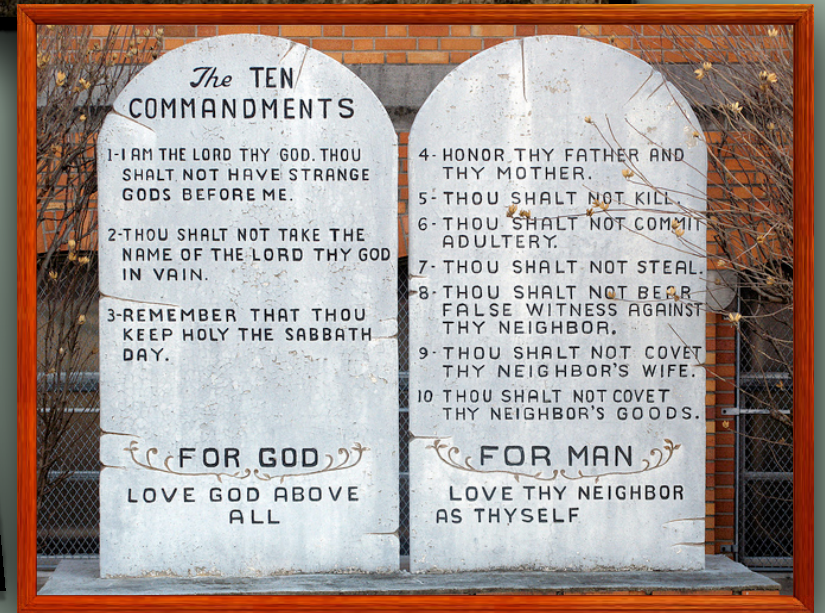 The TEN
COMMANDMENTS
1-I AM THE LORD THY GOD. THOU
SHALT NOT HAVE STRANGE
GODS BEFORE ME.
2-THOU SHALT NOT TAKE THE
NAME OF THE LORD THY GOD
IN VAIN.
3-REMEMBER THAT THOU
KEEP HOLY THE SABBATH
DAY.
FOR GOD
LOVE GOD ABOVE
ALL
4- HONOR THY FATHER AND
THY MOTHER.
5- THOU SHALT NOT KILL.
6- THOU SHALT NOT COMMIT
ADULTERY.
7- THOU SHALT NOT STEAL.
8- THOU SHALT NOT BEAR
FALSE WITNESS AGAINST
THY NEIGHBOR.
9- THOU SHALT NOT COVET
THY NEIGHBOR'S WIFE.
10 THOU SHALT NOT COVET
THY NEIGHBOR'S GOODS.
FOR MAN
LOVE THY NEIGHBOR
AS THYSELF